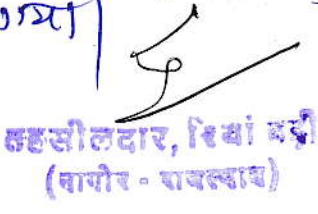 गया|
तहसीलदार, रियां बड़ी
(नागौर - राजस्थान)